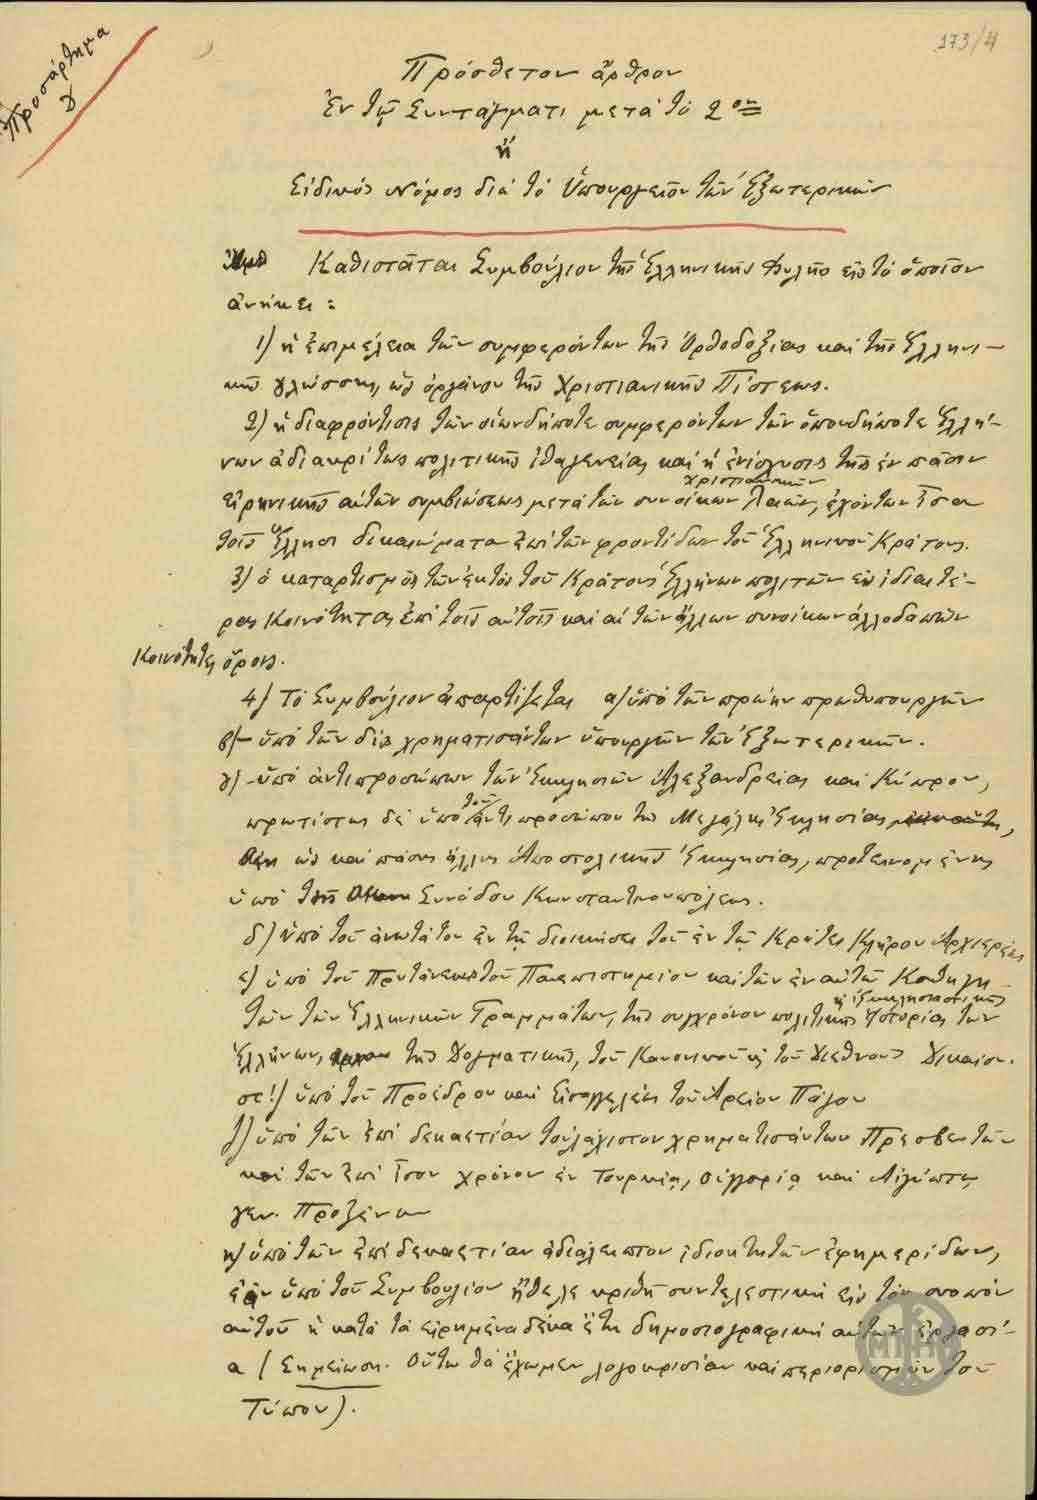 173/4
Προσάρτημα
Δ
Πρόσθετον ἄρθρον
Ἐν τῷ Συντάγματι μετὰ τὸ 2ον
ἢ
Εἰδικὸς Νόμος διὰ τὸ Ὑπουργεῖον τῶν Ἐξωτερικῶν
Καθισταται Συμβούλιον τῆς Ἑλληνικῆς Φυλῆς εἰς τὸ ὁποῖον
ἀνήκει :
1) ἡ ἐπιμέλεια τῶν συμφερόντων τῆς Ὀρθοδοξίας καὶ τῆς Ἑλληνι-
κῆς γλώσσης, ὡς ὀργάνου τῆς Χριστιανικῆς Πίστεως.
2) ἡ διαφρόντισις τῶν οἱωνδήποτε συμφερόντων τῶν ὁπουδήποτε Ἑλλή-
νων ἀδιακρίτως πολιτικῆς ἰθαγενείας καὶ ἡ ἐνίσχυσις τῆς ἐν πᾶσιν
χριστιανικῶν
εἰρηνικῆς αὐτῶν συμβιώσεως μετὰ τῶν συνοίκων Λαῶν, ἐχόντων ἴσα
τοῖς Ἕλλησι δικαιώματα ἐπὶ τῶν φροντίδων τοῦ Ἑλληνικοῦ Κράτους.
3) ὁ καταρτισμὸς τῶν ἐκτὸς τοῦ Κράτους Ἑλλήνων πολιτῶν εἰς ἰδιαιτέ-
ρας Κοινότητας ἐπὶ τοῖς αὐτοῖς καὶ αἱ τῶν ἄλλων συνοίκων ἀλλοδαπῶν
Κοινότητες ὅροις.
4) Τὸ Συμβούλιον ἀπαρτίζεται α) ὑπὸ τῶν πρώην πρωθυπουργῶν
β) - ὑπὸ τῶν δὶς χρηματισάντων ὑπουργῶν τῶν Ἐξωτερικῶν.
γ) - ὑπὸ ἀντιπροσώπων τῶν Ἐκκλησιῶν Ἀλεξανδρείας καὶ Κύπρου,
τοῦ
πρωτίστως δὲ ὑπὸ ἀντιπροσώπου τῆς Μεγάλης Ἐκκλησίας,
ὡς καὶ πάσης ἄλλης Ἀποστολικῆς Ἐκκλησίας, προτεινομένης
ὑπὸ τῆς Συνόδου Κωνσταντινουπόλεως.
δ) ὑπὸ τοῦ ἀνωτάτου ἐν τῇ διοικήσει τοῦ ἐν τῷ Κράτει Κλήρου Ἀρχιερέως
ε) ὑπὸ τοῦ Πρυτάνεως τοῦ Πανεπιστημίου καὶ τῶν ἐν αὐτῷ Καθηγη-
ἢ Ἐκκλησιαστικῆς
τῶν τῶν Ἑλληνικῶν Γραμμάτων, τῆς συγχρόνου πολιτικῆς Ἱστορίας τῶν
Ἑλλήνων, τῆς Δογματικῆς, τοῦ Κανονικοῦ ἢ τοῦ Διεθνοῦς Δικαίου.
ς!) ὑπὸ τοῦ Προέδρου καὶ Εἰσαγγελέως τοῦ Ἀρείου Πάγου
ζ) ὑπὸ τῶν ἐπὶ δεκαετίαν τοὐλάχιστον χρηματισάντων Πρεσβευτῶν
καὶ τῶν ἐπὶ ἴσον χρόνον ἐν Τουρκίᾳ, Οὐγγαρίᾳ καὶ Αἰγύπτῳ
γεν. Προξένων
η) ὑπὸ τῶν ἐπὶ δεκαετίαν ἀδιάλειπτον ἰδιοκτητῶν ἐφημερίδων,
ἐὰν ὑπὸ τοῦ Συμβουλίου ἤθελε κριθῆ συντελεστικὴ εἰς τὸν σκοπὸν
αὐτοῦ ἡ κατὰ τὰ εἰρημένα δέκα ἔτη δημοσιογραφικὴ αὐτῶν ἐργασί-
α (Σημείωσις. Οὕτω θὰ ἔχωμεν λογοκρισίαν καὶ περιορισμὸν τοῦ
Τύπου).